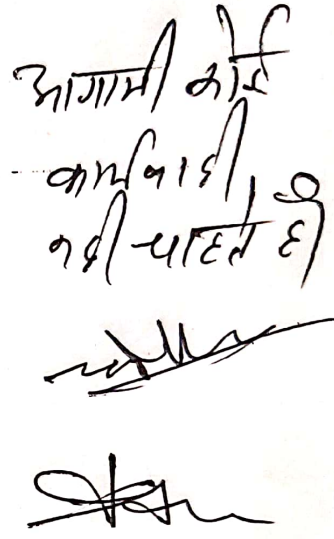 आगामी कोई
कार्यवाही
नही चाहते है।